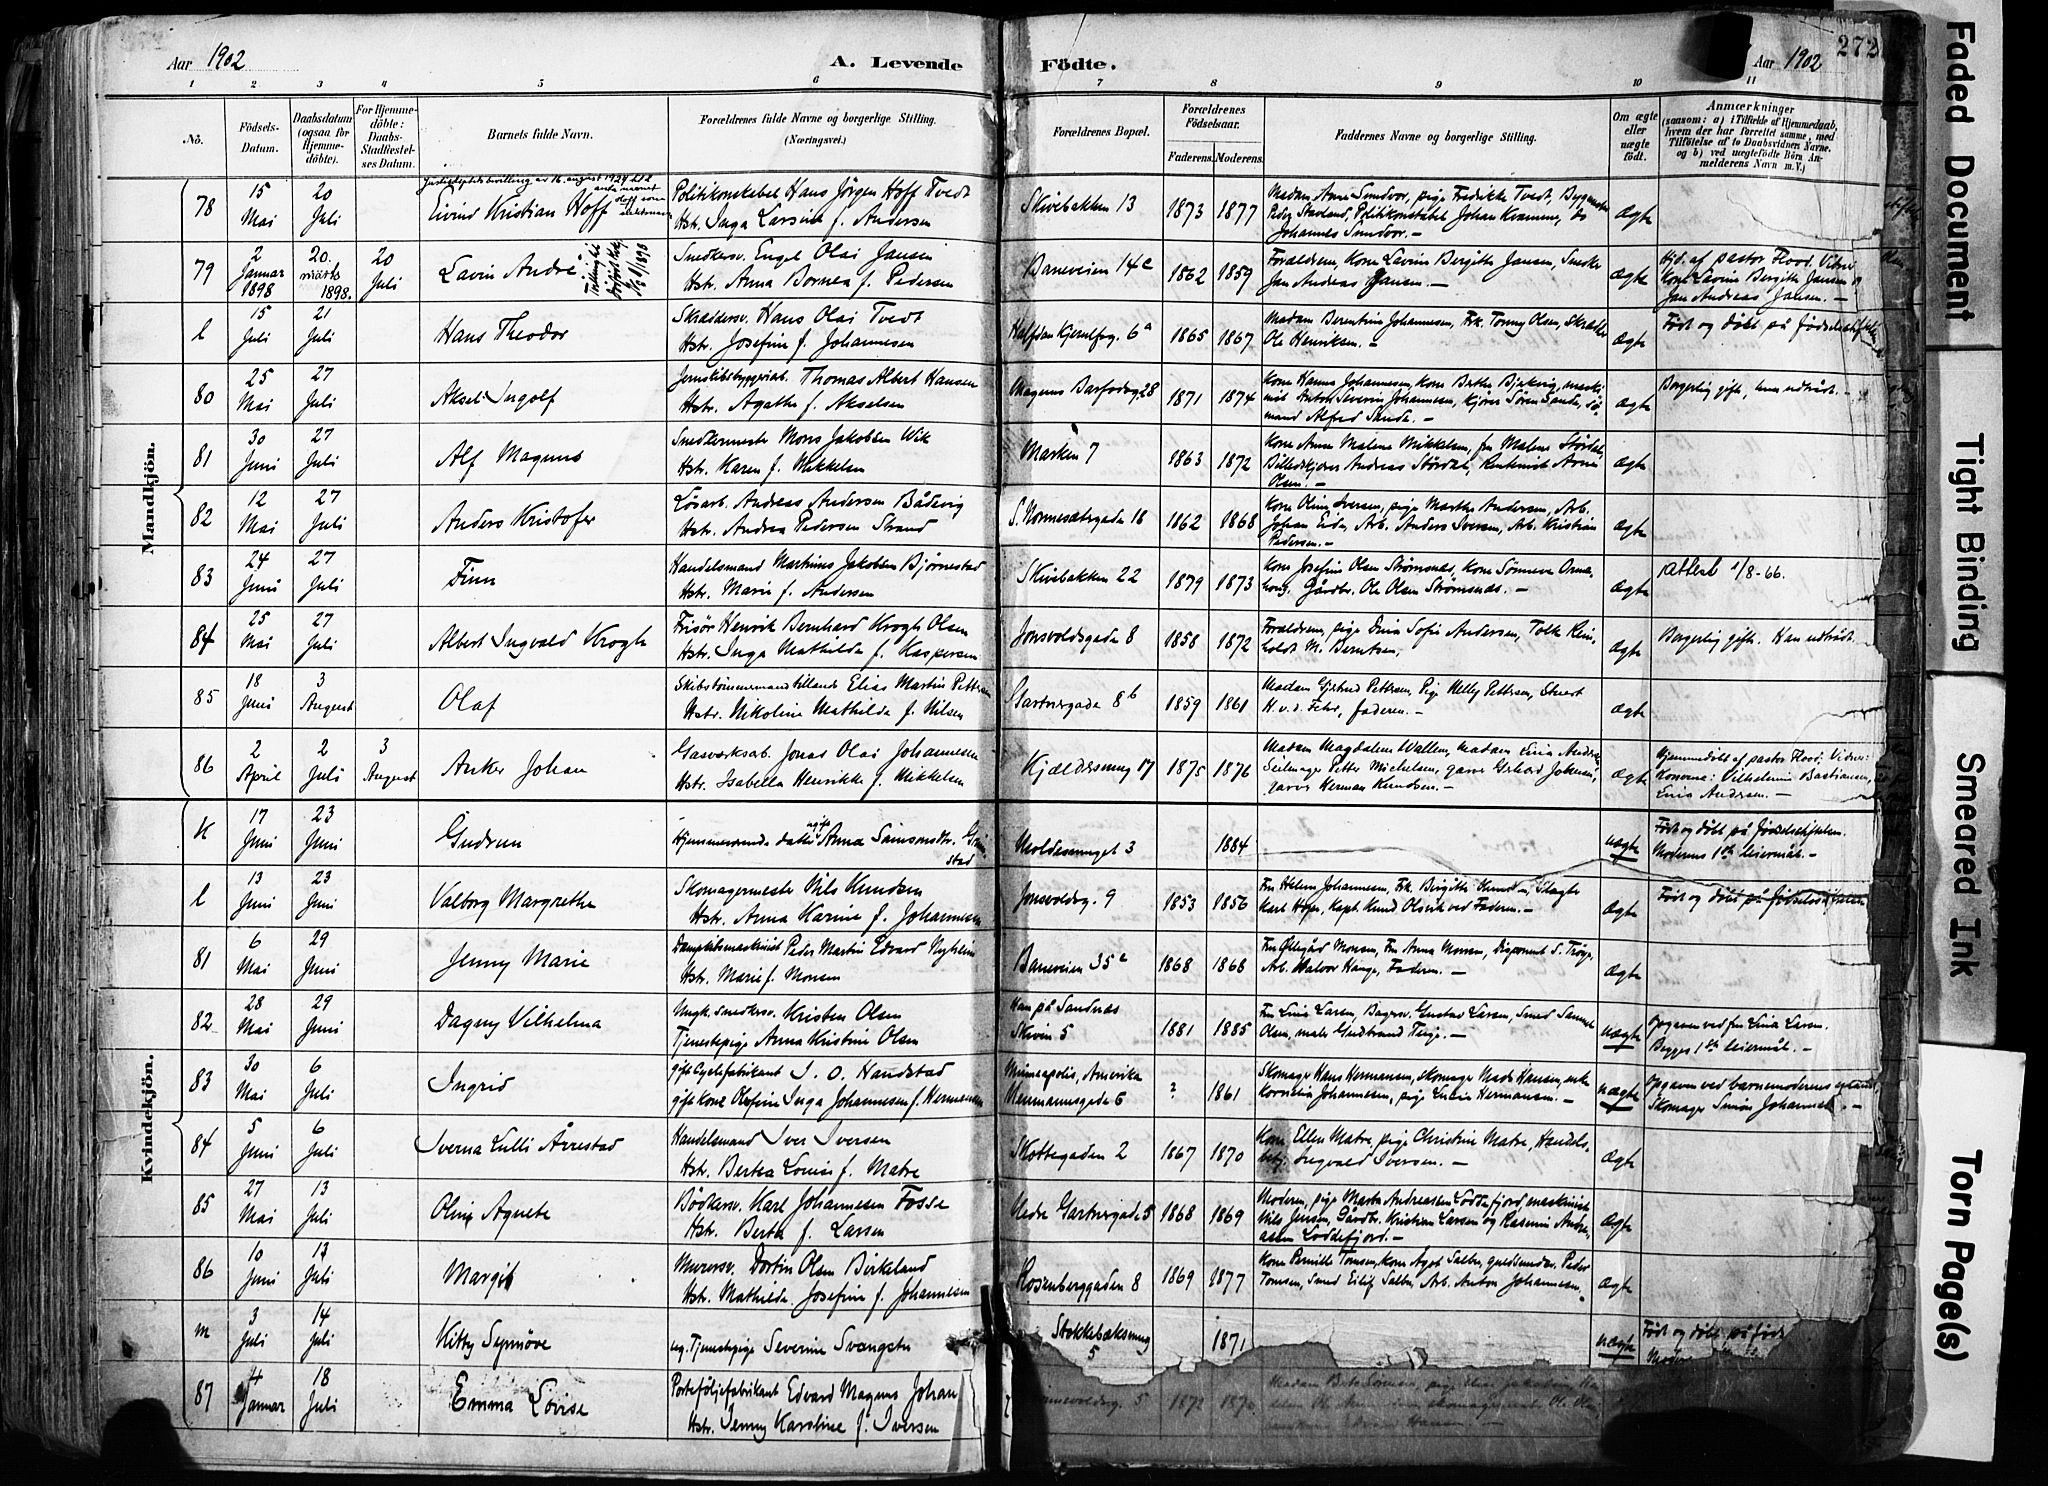 Aar 1902
A. Levende
Födte.
Aar 1902
272
1 2 3 4 5 6 7 8 9 10 11
No.
Födsels-Datum.
Daabsdatum (ogsaa for Hjemme-döbte).
For Hjemme-döbte: Daabs-Stadfæstel-ses Datum.
Barnets fulde Navn.
Forældrenes fulde Navne og borgerlige Stilling. (Næringsvei.)
Forældrenes Bopæl.
Forældrenes Födselsaar.
Faderens. Moderens.
Faddernes Navne og borgerlige Stilling.
Om ægte eller uægte födt.
Anmærkninger
(saasom: a) i Tilfælde af Hjemmedaab, hvem der har forrettet samme, med Tilföielse af to Daabsvidners Navne, og b) ved uægtefödte Börn Anmelderens Navn m. V.)
Mandkjön.
78 15 Mai 20 Juli Eivind Kristian Hoff
Politikonstabel Hans Jörgen Hoff Tvedt
Hstr. Inga Larsine f. Andersen
Skivebakken 13 1873 1877
Madam Anne Sundvor, pige Fredikke Tvedt,
Johannes Sundvor. –
Ægte
79 2 Januar 1898 20. marts 1898. 20 Juli Lavin André
Snedkersv. Engel Olai Jansen
Hstr. Anna Bornea f. Pedersen
Baneveien 14c 1862 1859
Forældrene, Kone Lavine Birgitte Jansen, Snedker
Jan Andreas Jansen. –
Ægte
Hjd. af pastor Flood. Vidner
Kone Lavine Birgitte Jansen og
Jan Andreas Jansen. –
l 15 Juli 21 Juli Hans Theodor
Skræddersv. Hans Olai Tvedt
Hstr. Josefine f. Johannesen
Halfdan Kjerulfsg. 6a 1865 1867
Madam Berentine Johannesen, Frk. Tonny Olsen, Skrædder
Ole Henriksen. –
Ægte
Født og døbt på fødselsstiftelsen
80 25 Mai 27 Juli Aksel Ingolf
Jernskibsbyggeriarb. Thomas Albert Hansen
Hstr. Agathe f. Akselsen
Magnus Barfodsg. 28 1871 1874
Kone Hanna Johannesen, kone Berthe
Anton Severin Johannesen, Kjører Søren Sande, sø-
mand Alfred Sande. –
Ægte
Borgerlig gift, hun udtrådt. –
81 30 Juni 27 Juli Alf Magnus
Snedkermester Mons Jakobsen Wik
Hstr. Karen f. Mikkelsen
Marken 7 1863 1872
Kone Anne Malene Mikkelsen, fru Malene Størdal,
Billedskjærer Andreas Størdal, Kontorist Arne
Olsen. –
Ægte
82 12 Mai 27 Juli Anders Kristofer
Løsarb. Andreas Andersen Bådsvig
Hstr. Andrea Pedersen Strand
S. Nonnesætergade 16 1862 1868
Kone Oline Iversen, pige Marthe Andersen, Arb.
Johan Eide, Arb. Anders Iversen, Arb. Kristian
Pedersen. –
Ægte
83 24 Juni 27 Juli Finn
Handelsmand Martinus Jakobsen Bjørnestad
Hstr. Marie f. Andersen
Skivebakken 22 1879 1873
Kone Josefine Olsen Strømsnes, Kone Sønneve Orma-
haug, Gårdbr. Ole Olsen Strømsnes. –
Ægte
Attest 1/8-66.
84 25 Mai 27 Juli Albert Ingvald Krogh
Frisör Henrik Bernhard Krogh Olsen
Hstr. Inga Mathilde f. Kaspersen
Jonsvoldsgade 8 1858 1872
Forældrene, pige Dina Sofie Andersen, Tolk Rein-
holdt M. Berntsen,
Ægte
Borgerlig gift. Han udtrådt.
85 18 Juni 3 August Olaf
Skibstømmermand Elias Martin Pettersen
Hstr. Nikoline Mathilde f. Nilsen
Gartnergade 8b 1859 1861
Madam Gjertrud Pettersen, Pige Nelly Pettersen, Stuert
H. v. d. Fehr, faderen. –
Ægte
86 2 April 2 Juli 3 August Anker Johan
Gasværksarb. Jonas Olai Johannesen
Hstr. Isabella Henrikke f. Mikkelsen
Kjeldersmug 17 1875 1876
Madam Magdalene Wallem, madam Lina Andersen
Seilmager Petter Michelsen, garver Gerhard Johansen,
garver Herman Knudsen. –
Ægte
Hjemmedøbt af pastor Flood. Vidner:
Konerne: Vilhelmine Bastiansen,
Lina Andersen. –
Kvindekjön.
k 17 Juni 23 Juni Gudrun
Hjemmeværende datter ugift Anna Samsonsdtr. Grimstad
Moldesmuget 3 1884
uægte
Født og døbt på fødselsstiftelsen.
Moderens 1ste leiermål. –
l 13 Juni 23 Juni Valborg Margrethe
Skomagermester Nils Knudsen
Hstr. Anna Karine f. Johannesen
Jonsvoldsg. 9 1853 1856
Fru Helene Johannesen, Frk. Birgitte Knudsen, Slagter
Karl Hope, Kapt. Knud Olsvik ved Faderen. –
Ægte
Født og døbt på fødselsstiftelsen
81 6 Mai 29 Juni Jenny Marie
Dampskibsmaskinist Peder Martin Edvard
Hstr. Marie f. Monsen
Baneveien 35a 1868 1868
Fru Øllegård Monsen, Fru Anna Monsen, Disponent S.
Arb. Halvor Hauge, Faderen. –
Ægte
82 28 Mai 29 Juni Dagny Vilhelma
Ungk. Snedkersv. Kristen Olsen
Tjenestepige Anna Kristine Olsen
Han på Sandnæs
Skiven 5 1881 1885
Fru Lina Larsen, Bagersv. Gustav Larsen, Smed Samuel
Olsen, maler Gudbrand Teige. –
uægte
Opgaven ved fru Lina Larsen.
Begges 1ste leiermål. –
83 30 Mai 6 Juli Ingrid
gift Cyclefabrikant I. O. Handstad
gift Kone Olefine Inga Johannesen f. Hermansen
Minneapolis, Amerika
Neumannsgade 6 ? 1861
Skomager Hans Hermansen, skomager Mads Hansen, enke
Kornelia Johannesen, pige Lucie Hermansen. –
uægte
Opgaven ved barnemoderens egtemand,
Skomager Simon Johannesen. –
84 5 Juni 6 Juli Iverna Lulli Årrestad
Handelsmand Iver Iversen
Hstr. Bertea Louise f. Matre
Skottegaden 2 1867 1870
Kone Ellen Matre, pige Christine Matre, Handels-
betj. Ingvald Iversen. –
Ægte
85 27 Mai 13 Juli Oline Agnete
Bødkersv. Karl Johannesen Fosse
Hstr. Berta f. Larsen
Nedre Gartnergade 5 1868 1869
Moderen, pige Marta Andreassen Loddefjord, maskinist
Nils Jensen, Gårdbr. Kristian Larsen og Rasmus Andre-
assen Loddefjord. –
Ægte
86 10 Juni 13 Juli Margit
Murersv. Dortin Olsen Birkeland
Hstr. Mathilde Josefine f. Johannesen
Rosenberggaden 8 1869 1877
Kone Pernille Tomsen, kone Aget Salbu, guldsmedsv. Peder
Tomsen, Smed Eilif Salbu, Arb. Anton Johannesen.
Ægte
m 3 Juli 14 Juli Kitty Synnöve
ug. Tjenestepige Severine Svangstu
Stokkebæksmug 5 1871
uægte
Født og døbt på fød
87 4 Januar 18 Juli Emma Lovise
Porteföljefabrikant Edvard Magnus Johan
Hstr. Jenny Karoline f. Iversen
5 1872 1870
Faded Document
Tight Binding
Smeared Ink
Torn Page(s)